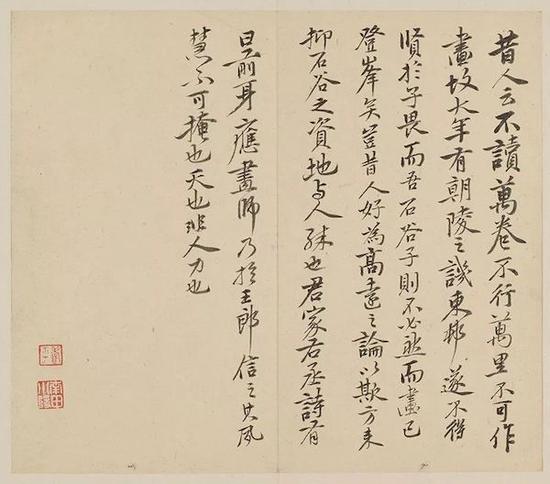 昔人云不讀萬卷不行萬里不可作
畫故大年有朝陵之譏東邨遂不得
賢於子畏而吾石谷子則不必然而畫已
登峯矣豈昔人好為高遠之論以欺方來
抑石谷之資地与人殊也君家右丞詩有
曰前身應畫師乃於王郎信之其夙
慧不可掩也天也非人力也